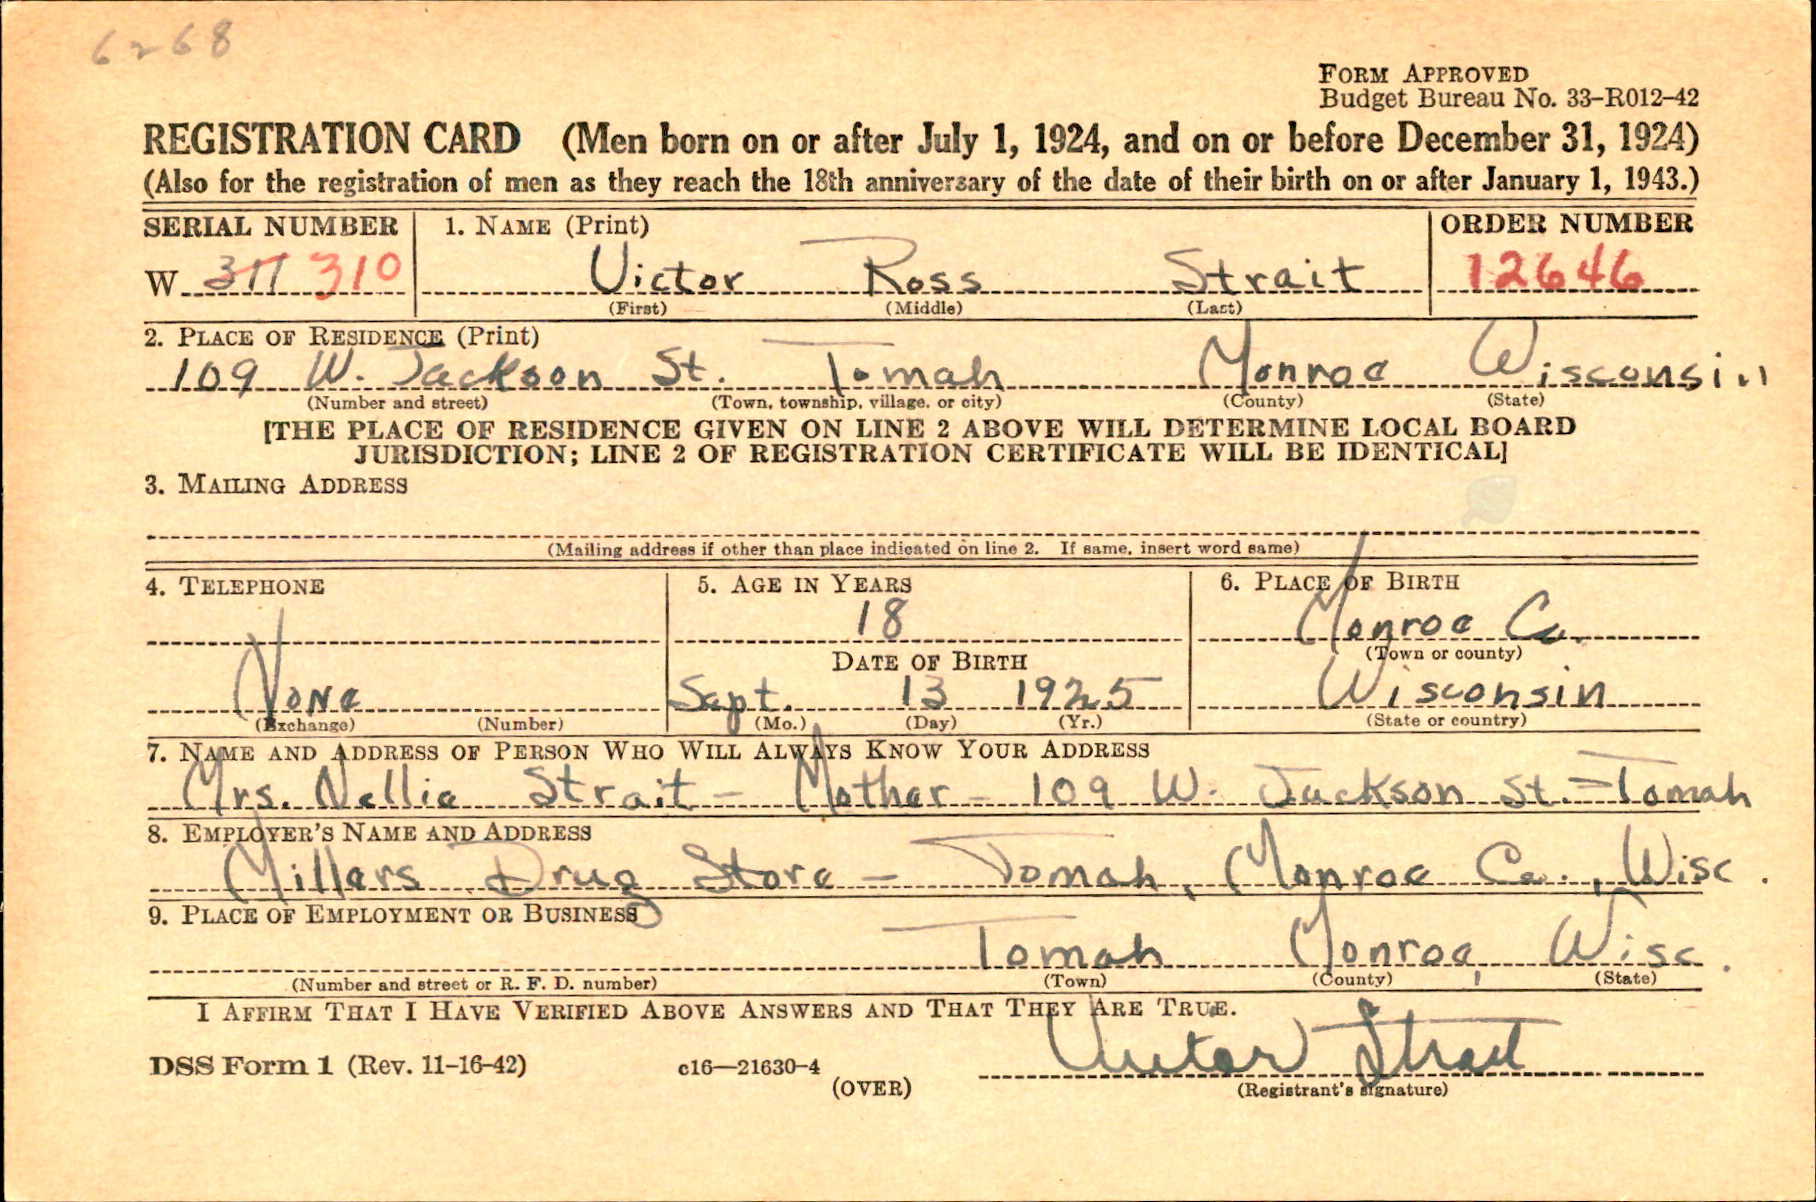 6268
FORM APPROVED
Budget Bureau No. 33-R012-42
REGISTRATION CARD (Men born on or after July 1, 1924, and on or before December 31, 1924)
(Also for the registration of men as they reach the 18th anniversary of the date of their birth on or after January 1, 1943.)
SERIAL NUMBER 1. NAME (Print) ORDER NUMBER
W 311 310 Victor Ross Strait 12646
(First) (Middle) (Last)
2. PLACE OF RESIDENCE (Print)
109 W. Jackson St. Tomah Monroe Wisconsin
(Number and street) (Town, township, village, or city) (County) (State)
[THE PLACE OF RESIDENCE GIVEN ON LINE 2 ABOVE WILL DETERMINE LOCAL BOARD
JURISDICTION; LINE 2 OF REGISTRATION CERTIFICATE WILL BE IDENTICAL]
3. MAILING ADDRESS
(Mailing address if other than place indicated on line 2. If same, insert word same)
4. TELEPHONE 5. AGE IN YEARS 6. PLACE OF BIRTH
18 Monroe Co.
DATE OF BIRTH (Town or county)
None Sept. 13 1925 Wisconsin
(Exchange) (Number) (Mo.) (Day) (Yr.) (State or country)
7. NAME AND ADDRESS OF PERSON WHO WILL ALWAYS KNOW YOUR ADDRESS
Mrs. Nellie Strait - Mother - 109 W. Jackson St. - Tomah
8. EMPLOYER'S NAME AND ADDRESS
Millers Drug Store - Tomah, Monroe Co., Wisc.
9. PLACE OF EMPLOYMENT OR BUSINESS
Tomah Monroe, Wisc.
(Number and street or R. F. D. number) (Town) (County) (State)
I AFFIRM THAT I HAVE VERIFIED ABOVE ANSWERS AND THAT THEY ARE TRUE.
Victor Strait
DSS Form 1 (Rev. 11-16-42) c16—21630-4
(OVER) (Registrant's signature)